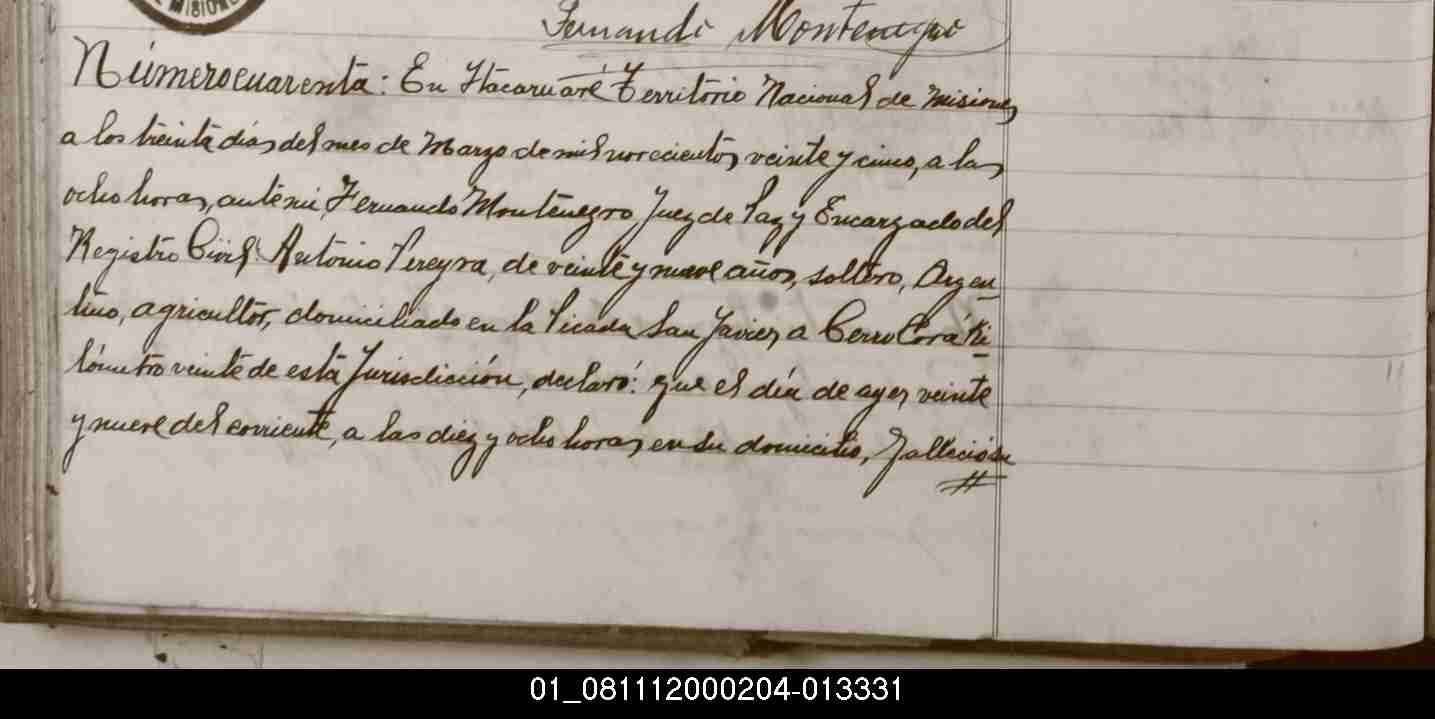 MISIONES
Fernando Montenegro
Número cuarenta: En Itacaruaré Territorio Nacional de Misiones,
a los treinta dias del mes de Marzo de mil novecientos veinte y cinco, a las
ocho horas, ante mi, Fernando Montenegro Juez de Paz y Encargado del
Registro Civil Antonio Pereyra, de veinte y nueve años, soltero, Argen_
tino, agricultor, domiciliado en la Picada San Javier, a Cerro Corá Ki_
lómetro veinte de esta Jurisdicción, declaró: que el día de ayer veinte
y nueve del corriente, a las diez y ocho horas, en su domicilio, falleció su
01_081112000204-013331